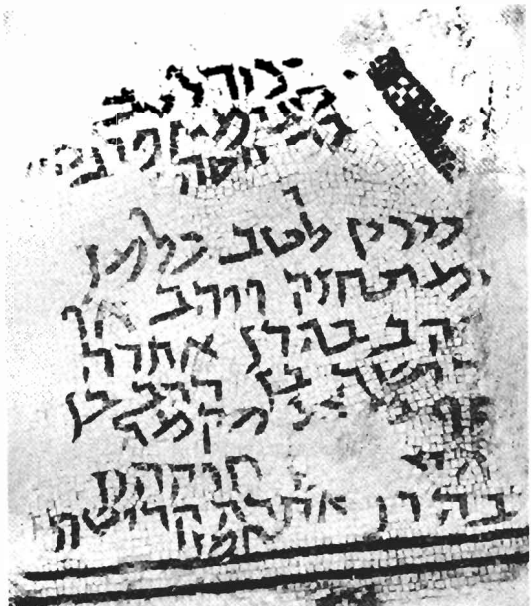 דכיר לטב
בנימין פרנסה
בר יוסה
דכירין לטב כל מן
דמתחזק ויהב או
יהב בהדן אתרה
קדישה בן דהב בן
מקמה
חולקהון
בהדן אתרה קדישה
אמן